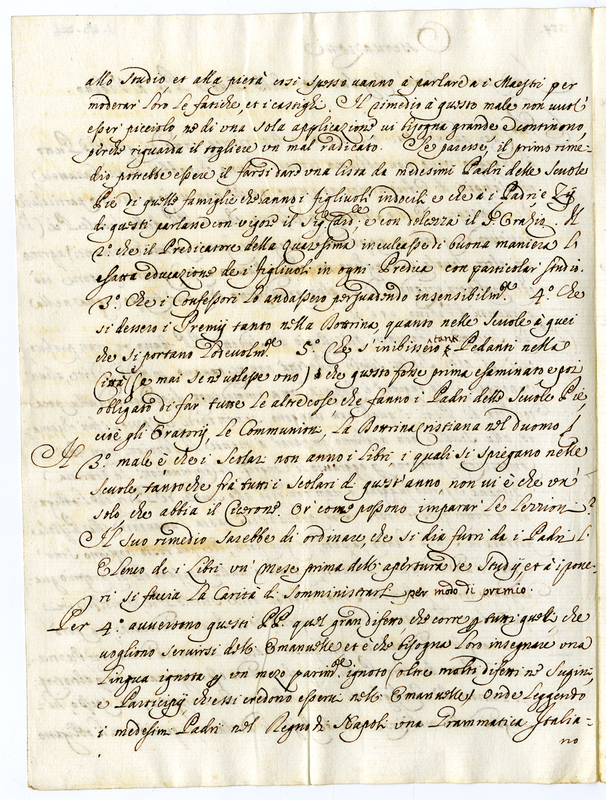 allo Studio et alla pietà così spesso uanno à parlare a i Maestri per
moderar loro le fatiche, et i castighi. Il rimedio à questo male non vuol
esser picciolo, ne di vna sola applicazione, ui bisogna grande e continouo,
perche riguarda il togliere vn mal radicato. Se paresse, il primo rime-
dio potrebbe essere il farsi dare vna lista da medesimi Padri delle Scuole
Pie di quelle famiglie che anno i figliuoli indocili e che a i Padri e Zij
di questi parlasse con vigore il Sig.r Card.le e con dolcezza il P. Orazio. Il
2.º che il Predicatore della Quaresima inculcasse di buona maniera la
esatta educazione de i figliuoli in ogni Predica con particolar studio.
3.º Che i Confessori lo andassero persuadendo insensibilm.te 4.º Che
si dessero i Premij tanto nella Dottrina, quanto nelle Scuole à quei
che si portano lodevolm.te 5.º Che s'inibissero tanti Pedanti nella
Città (se mai se n'volesse vno) che questo fosse prima esaminato e poi
obligato di far tutte le altre cose che fanno i Padri delle Scuole Pie
cioè gli Oratorij, le Communioni, la Dottrina Cristiana nel duomo /.
Il 3.º male è che i Scolari non anno i Libri, i quali si spiegano nelle
Scuole, tanto che frà tutti i Scolari di quest'anno, non vi è che vn'
solo che abbia il Cicerone. Or come possono imparar le lezzioni?
Il suo rimedio sarebbe di ordinare, che si dia fuori da i Padri l'
Elenco de i Libri vn' mese prima dell'apertura de Studij, et à i poue-
ri si faccia la Carità di somministrarli per modo di premio.
Per 4.º auuertono questi PP. quel gran difetto, che corre p tutti quelli, che
vogliono seruirsi dell'Emanuelle et è che bisogna loro insegnare vna
lingua ignota p vn mezo parim.te ignoto (oltre molti difetti ne Supini,
e Participij ch'essi credono essere nell'Emanuelle) Onde leggendo
i medesimi Padri nel Regno di Napoli vna Grammatica Italia-
no